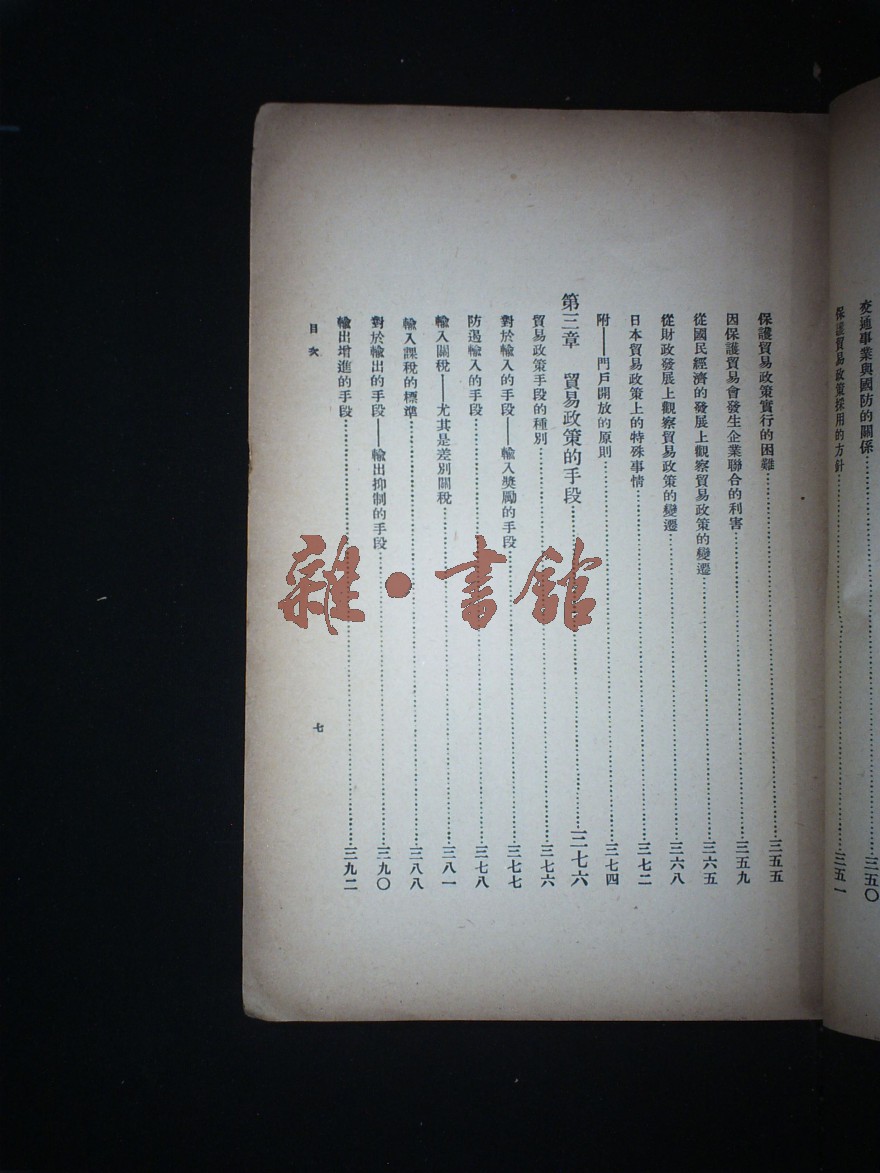 交通事業與國防的關係……三五〇
保護貿易政策採用的方針……三五一
保護貿易政策實行的困難……三五五
因保護貿易會發生企業聯合的利害……三五九
從國民經濟的發展上觀察貿易政策的變遷……三六五
從財政發展上觀察貿易政策的變遷……三六八
日本貿易政策上的特殊事情……三七二
附——門戶開放的原則……三七四
第三章 貿易政策的手段……三七六
貿易政策手段的種別……三七六
對於輸入的手段——輸入獎勵的手段……三七七
防遏輸入的手段……三七八
輸入關稅——尤其是差別關稅……三八一
輸入課稅的標準……三八八
對於輸出的手段——輸出抑制的手段……三九〇
輸出增進的手段……三九二
目次
七
雜·書館